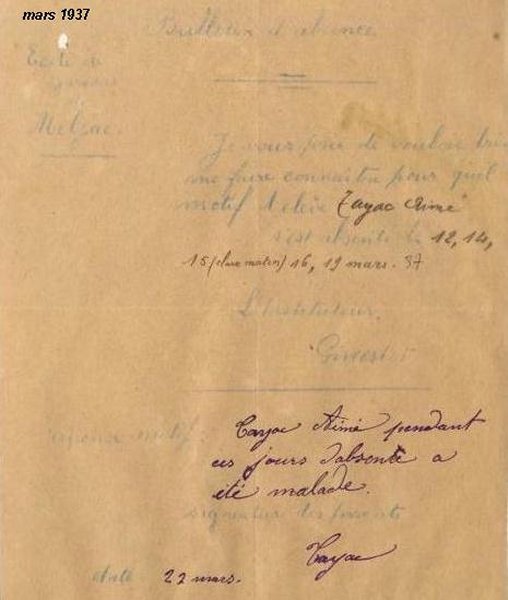 mars 1937
Bulletin d'absence
Ecole de
garçons
Melzac
Je vous prie de vouloir bien
me faire connaître pour quel
motif l'élève Cayac Aimé
s'est absenté le 12, 14,
15 (classe matin) 16, 19 mars. 37
L'Instituteur,
motif:
Cayac Aimé pendant
ces jours d'absente a
été malade.
signature des parents
Cayac
date 22 mars.